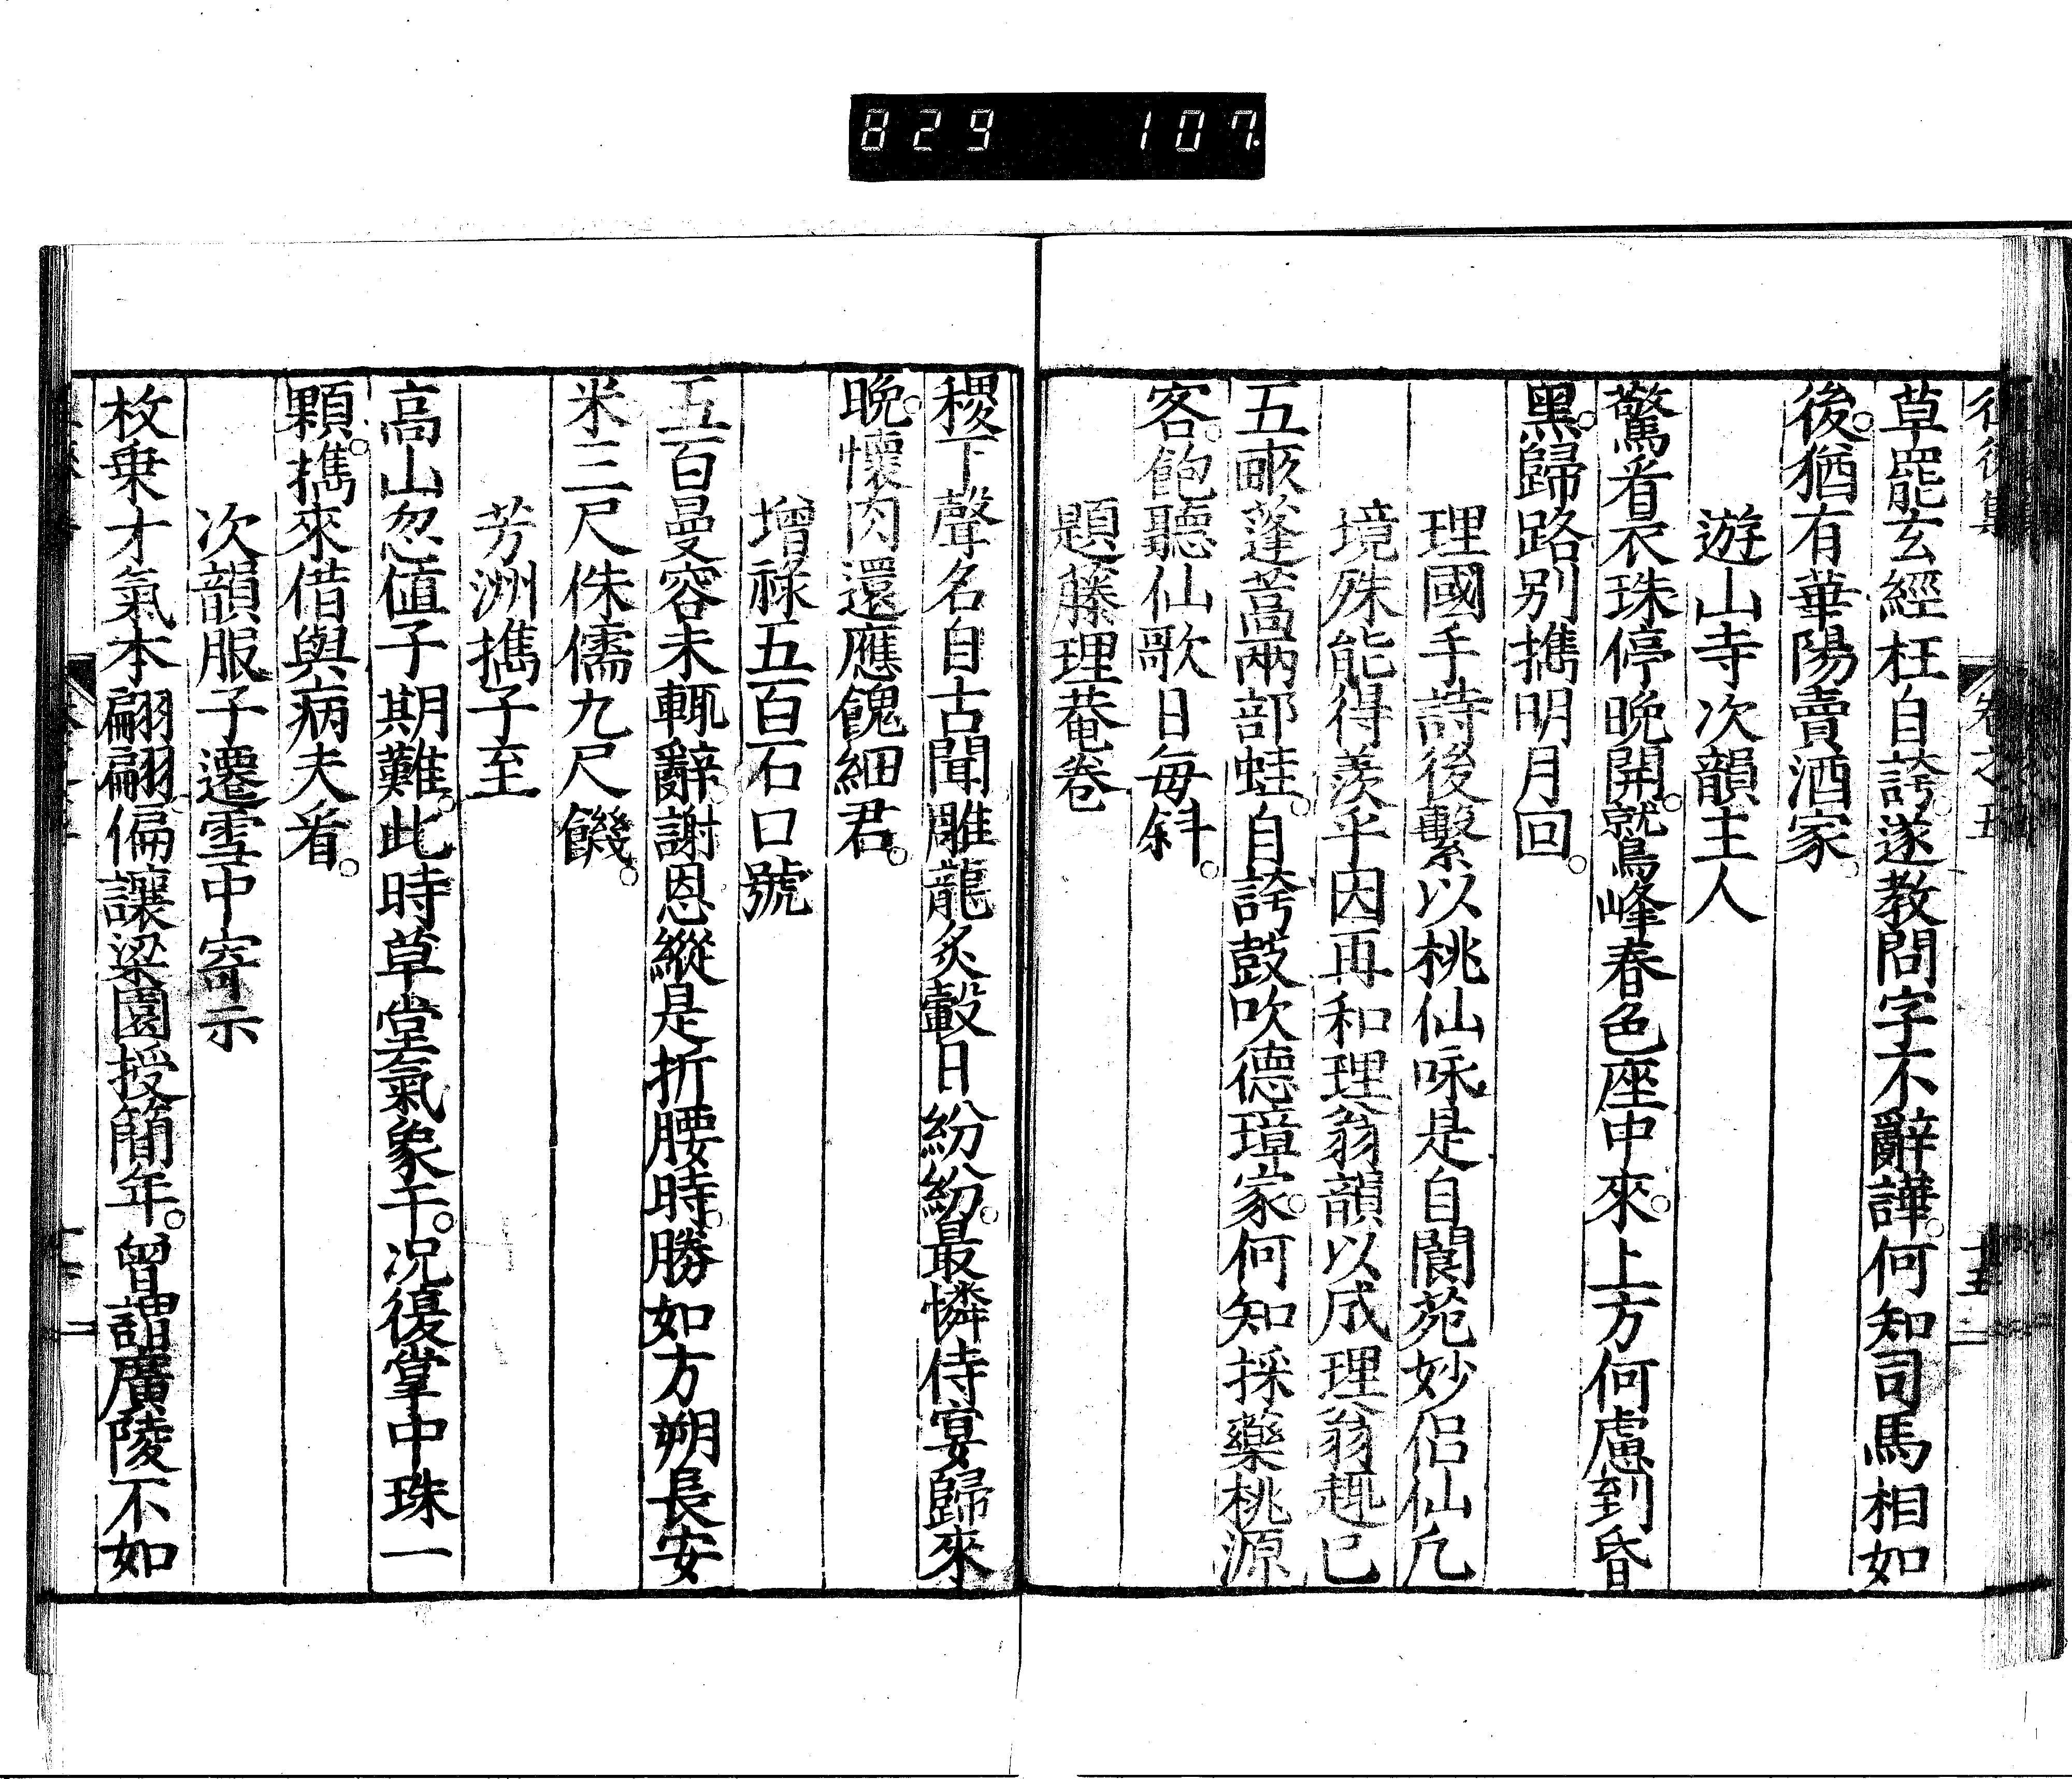 829 107
草罷玄經枉自誇遂教問字不辭譁何知司馬相如
後猶有華陽賣酒家
遊山寺次韻主人
驚看衣珠停晩開鷲峰春色座中來上方何慮到昏
黑歸路別攜明月回
理國手詩後繫以桃仙咏是自閬苑妙侶仙凡
境殊能得羨乎因再和理翁韻以成理翁趣已
五畝蓬蒿兩部蛙自誇鼓吹德璋家何知採藥桃源
客飽聽仙歌日每斜
題藤理菴卷
稷下聲名自古聞雕龍炙轂日紛紛最憐侍宴歸來
晩懷肉還應餽細君
增祿五百石口號
五百曼容未輒辭謝恩縱是折腰時勝如方朔長安
米三尺侏儒九尺饑
芳洲攜子至
高山忽値子期難此時草堂氣象干况復掌中珠一
顆攜來借與病夫看
次韻服子遷雪中寄示
枚乗才氣本翩翩偏讓梁園授簡年曾謂廣陵不如